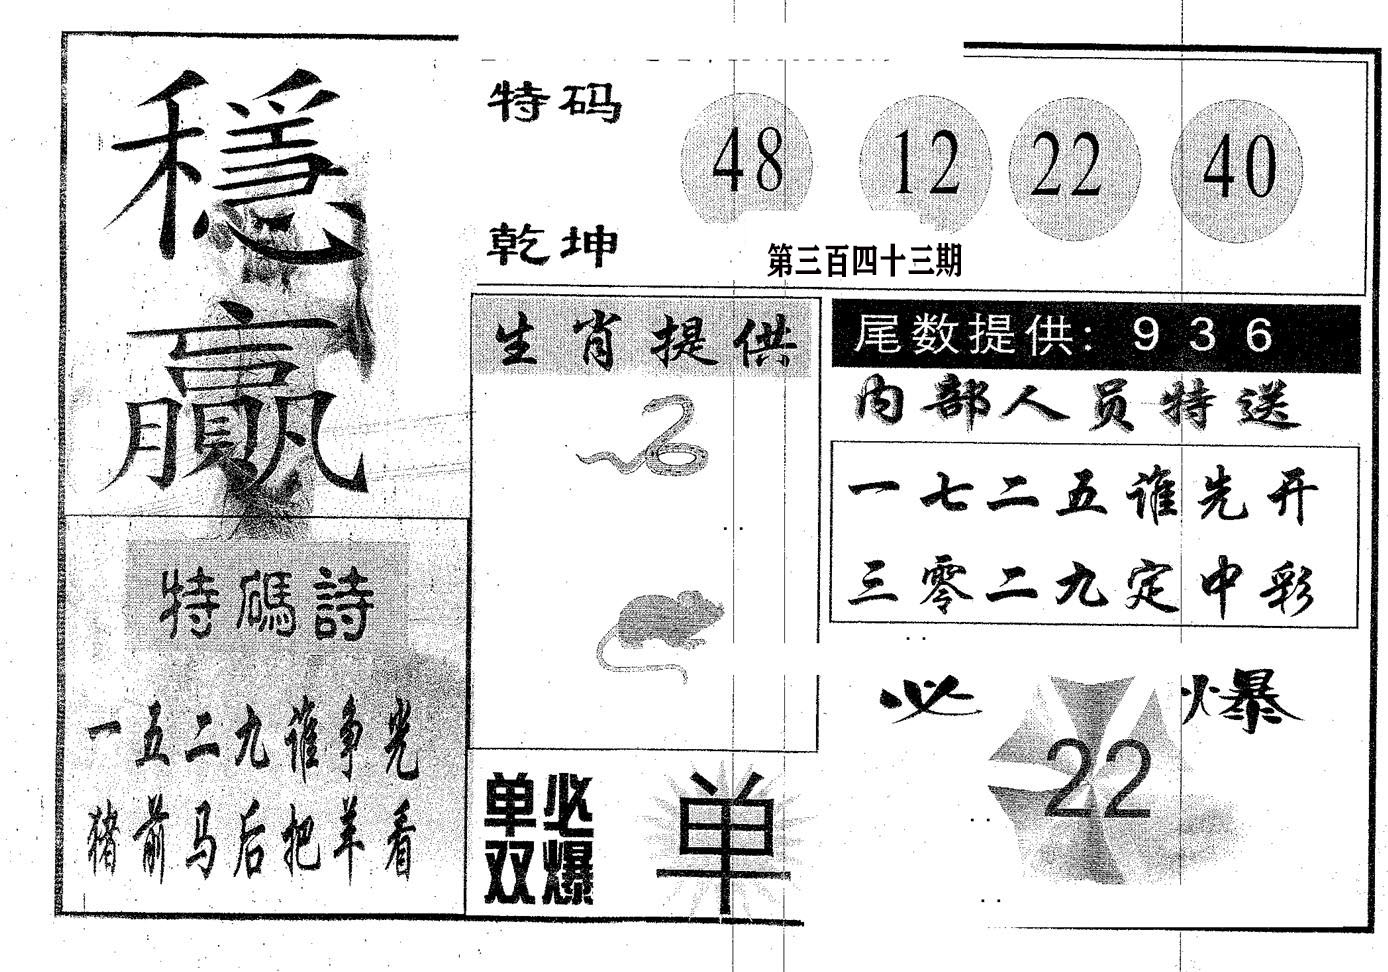 穩
贏
特码
乾坤
48 12 22 40
第三百四十三期
生肖提供
尾数提供: 9 3 6
内部人员特送
一七二五谁先开
三零二九定中彩
特碼詩
一五二九谁争光
猪前马后把羊看
必爆
22
单必
双爆
单